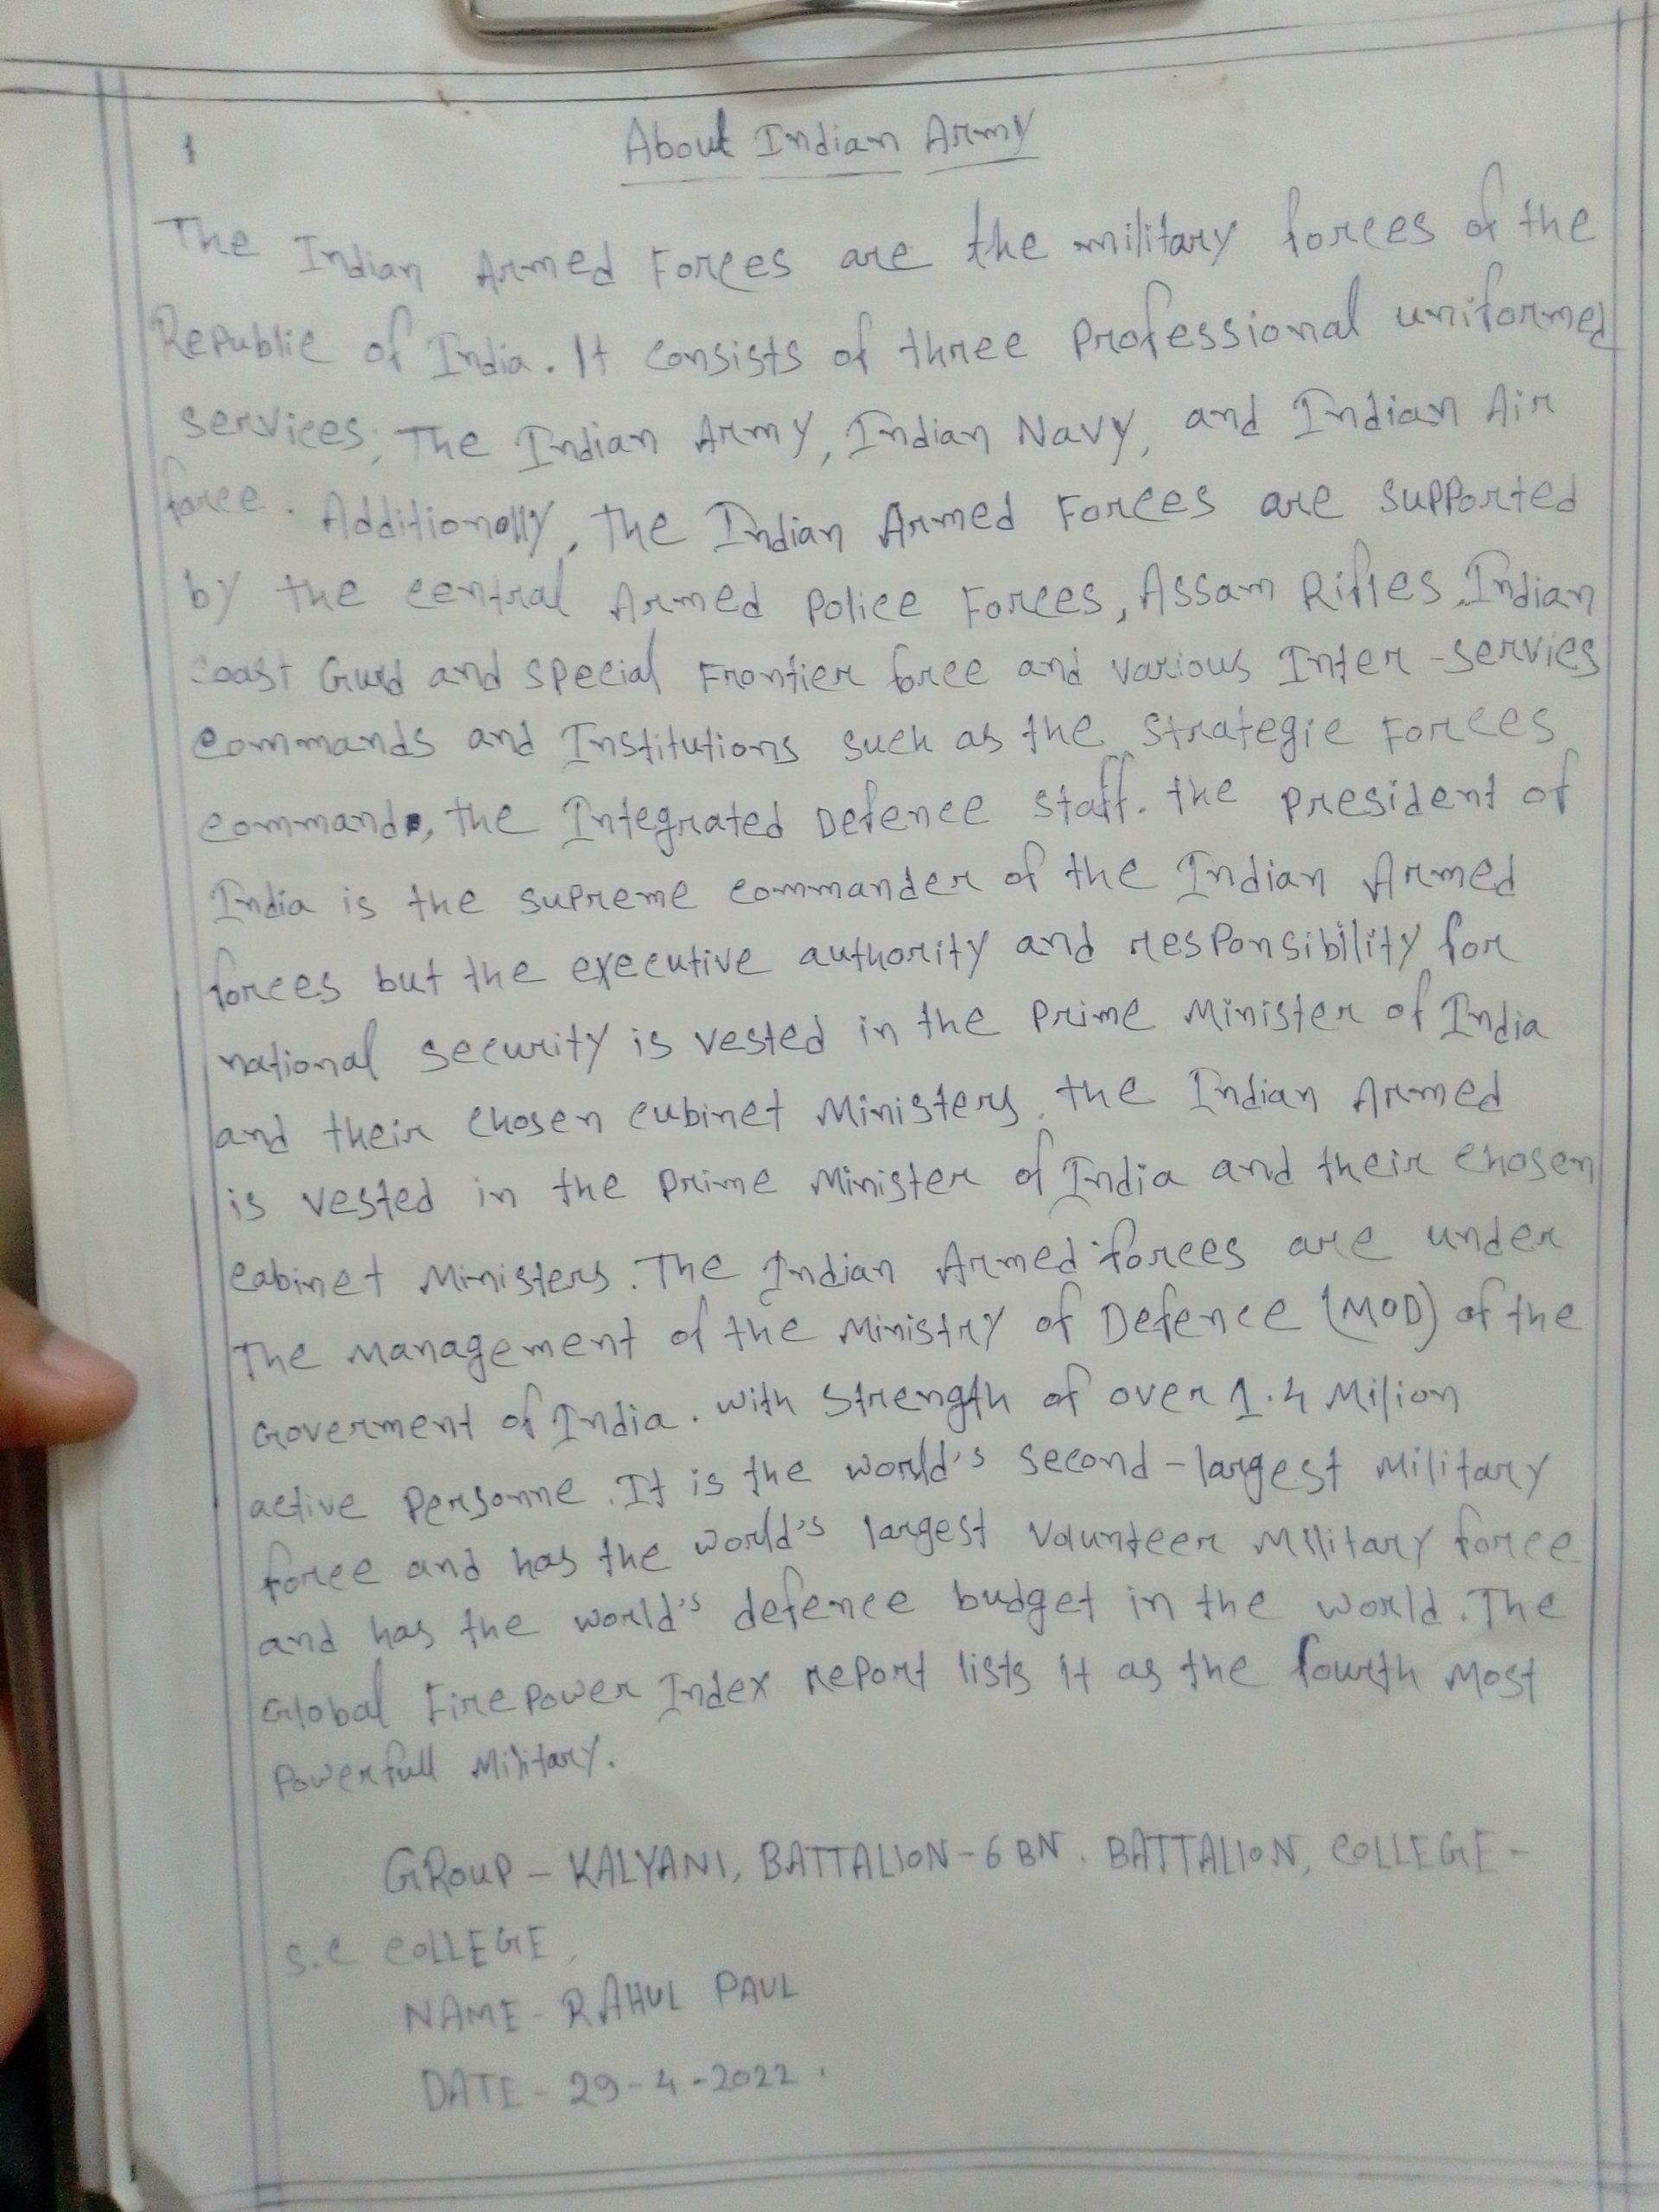 1
About Indian Army
The Indian Armed Forces are the military forces of the
Republic of India. It consists of three Professional uniformed
services; The Indian Army, Indian Navy, and Indian Air
force. Additionally, The Indian Armed Forces are supported
by the central Armed Police Forces, Assam Rifles, Indian
Coast Gurd and special Frontier force and various Inter-servies
commands and Institutions such as the strategic Forces
command, the Integrated Defence staff. the president of
India is the supreme commander of the Indian Armed
forces but the executive authority and responsibility for
national security is vested in the Prime Minister of India
and their chosen cubinet Ministers. the Indian Armed
is vested in the prime Minister of India and their chosen
cabinet Ministers. The Indian Armed forces are under
The Management of the Ministry of Defence (MOD) of the
Goverment of India. with strength of over 1.4 Milion
active Personne. It is the world's second-largest Military
force and has the world's largest volunteer Military force
and has the world's defence budget in the world. The
Global Fire Power Index report lists it as the fourth Most
Powerfull Military.
GROUP - KALYANI, BATTALION - 6 BN. BATTALION, COLLEGE -
S.C COLLEGE,
NAME - RAHUL PAUL
DATE - 29-4-2022.